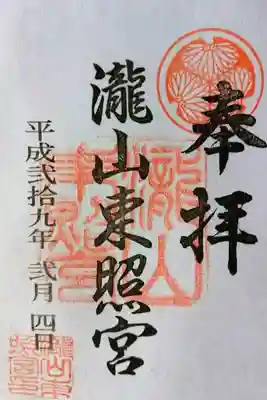 奉拝
瀧山東照宮
平成弐拾九年 弐月 四日